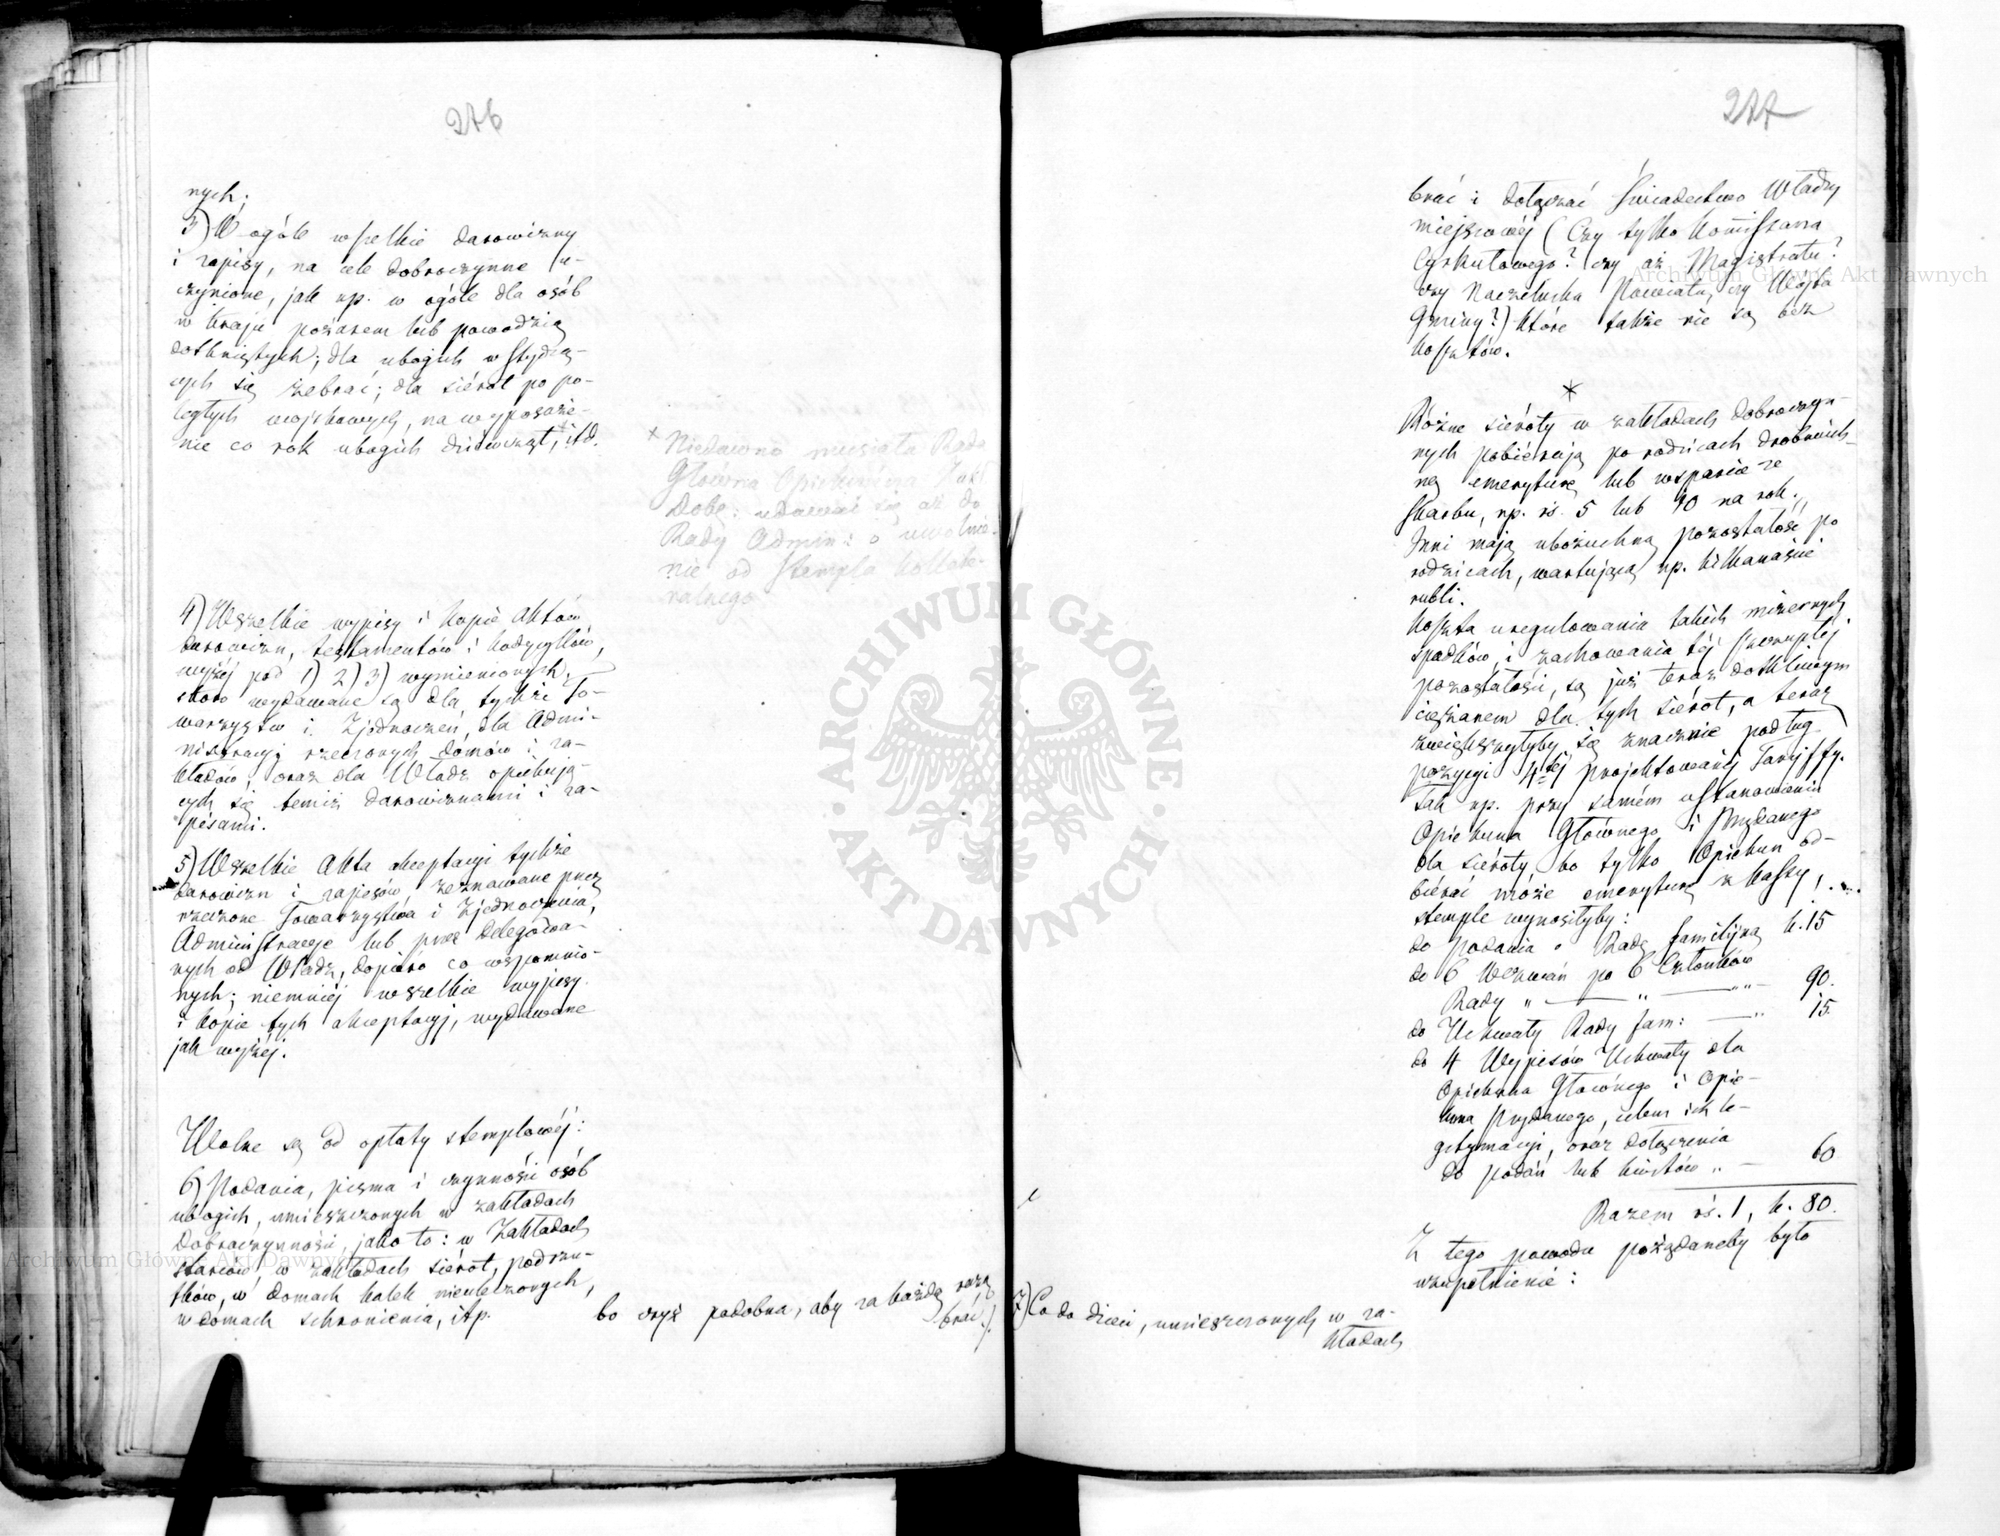 276
nych;
3) W ogóle wszelkie darowizny
i zapisy, na cele dobroczynne u-
czynione, jak np. w ogóle dla osób
w kraju pożarem lub powodzią
dotkniętych; dla ubogich wstydzą-
cych się żebrać; dla siérot po po-
ległych wojskowych, na wyposaże-
nie co rok ubogich dziewcząt, itd.
* Niedawno musiała Rada
Główna Opiekuńcza Zakł
Dobr: udawać się aż do
Rady Admin: o uwolnie-
nie od stempla kollate-
ralnego
4) Wszelkie wypisy i kopie Aktów
darowizn, testamentów i kodycyllów,
wyżéj pod 1) 2) 3) wymienionych,
skoro wydawane są dla tychże To-
warzystw i Zjednoczeń, dla Admi-
nistracyj rzeczonych domów i za-
kładów, oraz dla Władz opiekują-
cych się temiż darowiznami i za-
pisami.
5) Wszelkie Akta akceptacyi tychże
darowizn i zapisów zeznawane przez
rzeczone Towarzystwa i Zjednoczenia,
Administracje lub przez Delegowa-
nych od Władz, dopiéro co wspomnio-
nych; niemniéj wszelkie wypisy
i kopie tych akceptacyj, wydawane
jak wyżéj.
Wolne są od opłaty stemplowéj:
6) Podania, pisma i czynności osób
ubogich, umieszczonych w zakładach
Dobroczynności, jako to: w Zakładach
starców, w zakładach siérot, podrzu-
tków, w domach kalek nieuleczonych,
w domach schronienia, itp.
bo czyż podobna, aby za każdą razą
brać
277
brać i dołączać świadectwo Władzy
miejscowéj (Czy tylko Kommissarza
Cyrkułowego? czy aż Magistratu?
czy Naczelnika Powiatu, czy Wójta
Gminy?) które także nie są bez
kosztów.
*
Różne siéroty w zakładach dobroczyn-
nych pobiérają po rodzicach drobniuch-
ną emeryturę lub wsparcie ze
skarbu, np. rś. 5 lub 10 na rok.
Inni mają ubożuchną pozostałość po
rodzicach, wartującą np. kilkanaście
rubli.
Koszta uregulowania takich mizernych
spadków, i zachowania téj szczupłéj
pozostałości, są już teraz dotkliwym
ciężarem dla tych siérot, a teraz
zwiększyłyby się znacznie podług
pozycyi 4téj projektowanéj Taryffy.
Tak np. przy samém ustanowieniu
Opiekuna Głównego i Przydanego
dla siéroty, bo tylko Opiekun od-
biérać może emeryturę z kassy,
stemple wynosiłyby:
do podania o Radę familijną k. 15
do 6 Wezwań po 6 Członków
Rady „ — „ — „„ — 90.
do Uchwały Rady fam: — „ 15.
do 4 Wypisów Uchwały dla
Opiekuna Głównego i Opie-
kuna Przydanego, celem ich le-
gitymacyi, oraz dołączenia
do podań lub kwitów „ — 60
Razem rś. 1, k. 80.
Z tego powodu pożądaneby było
uzupełnienie:
7) Co do dzieci, umieszczonych w za-
kładach
ARCHIWUM GŁÓWNE AKT DAWNYCH
Archiwum Główne Akt Dawnych
Archiwum Główne Akt Dawnych